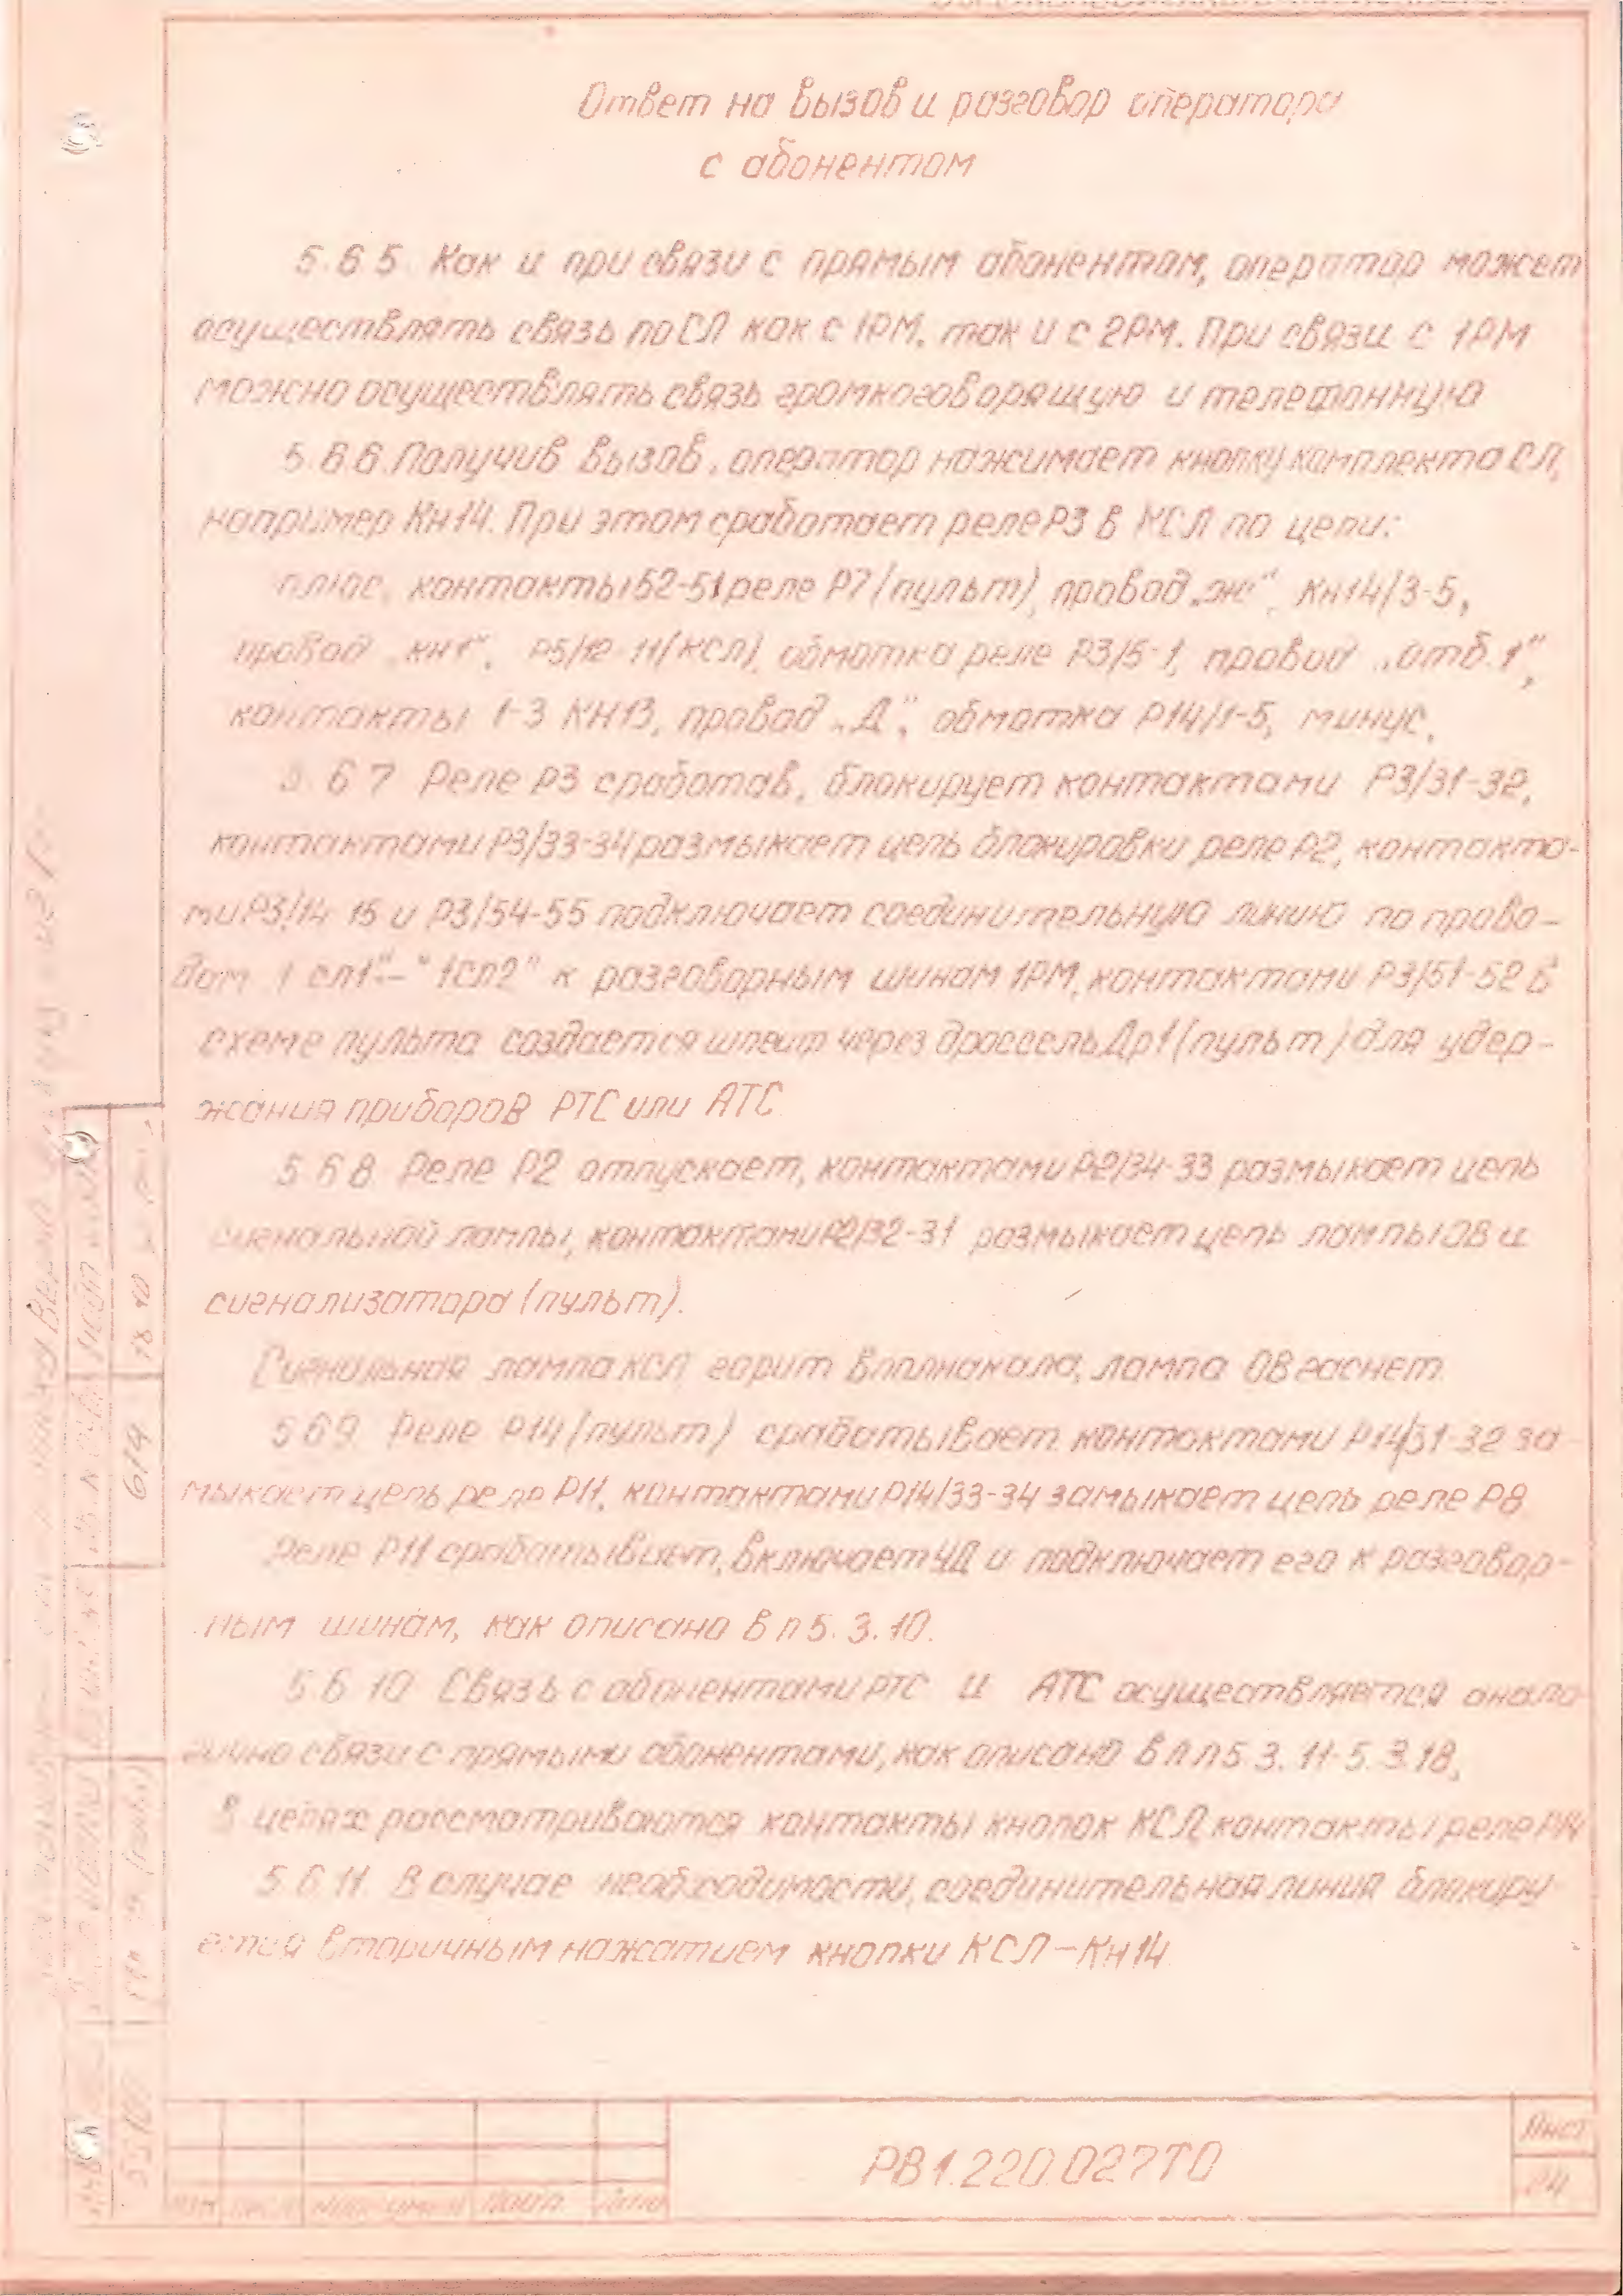 Ответ на вызов и разговор оператора
с абонентом
5.6.5. Как и при связи с прямым абонентом, оператор может
осуществлять связь по СЛ как с 1РМ, так и с 2РМ. При связи с 1РМ
можно осуществлять связь громкоговорящую и телефонную
5.6.6. Получив вызов, оператор нажимает кнопку комплекта СЛ,
например Кн14. При этом сработает реле Р3 в КСЛ по цепи:
плюс, контакты 52-51 реле Р7/пульт), провод „ж“, Кн14/3-5,
провод „кн1“, Р5/12-11(КСЛ), обмотка реле Р3/5-1, провод „отб.1“,
контакты 1-3 КН13, провод „Д“, обмотка Р14/1-5, минус.
5.6.7 Реле Р3 сработав, блокирует контактами Р3/31-32,
контактами Р3/33-34 размыкает цепь блокировки реле Р2, контакта-
ми Р3/14-15 и Р3/54-55 подключает соединительную линию по прово-
дам 1сл1“-“1сл2“ к разговорным шинам 1РМ, контактами Р3/51-52 в
схеме пульта создается шлейф через дроссель Др1(пульт) для удер-
жания приборов РТС или АТС
5.6.8. Реле Р2 отпускает, контактами Р2/34-33 размыкает цепь
сигнальной лампы, контактами Р2/32-31 размыкает цепь лампы ОВ и
сигнализатора (пульт).
Сигнальная лампа КСЛ горит вполнакала, лампа ОВ гаснет.
5.6.9. Реле Р14/пульт) срабатывает контактами Р14/31-32 за
мыкает цепь реле Р11, контактами Р14/33-34 замыкает цепь реле Р8
Реле Р11 срабатывает, включает УД и подключает его к разговор-
ным шинам, как описано в п 5.3.10.
5.6.10 Связь с абонентами РТС и АТС осуществляется анало
гично связи с прямыми абонентами, как описано в пп 5.3.11-5.3.18,
в цепях рассматриваются контакты кнопок КСЛ, контакты реле Р14
5.6.11. В случае необходимости, соединительная линия блокиру
ется вторичным нажатием кнопки КСЛ-Кн14
РВ1.220.027ТО
Лист
24